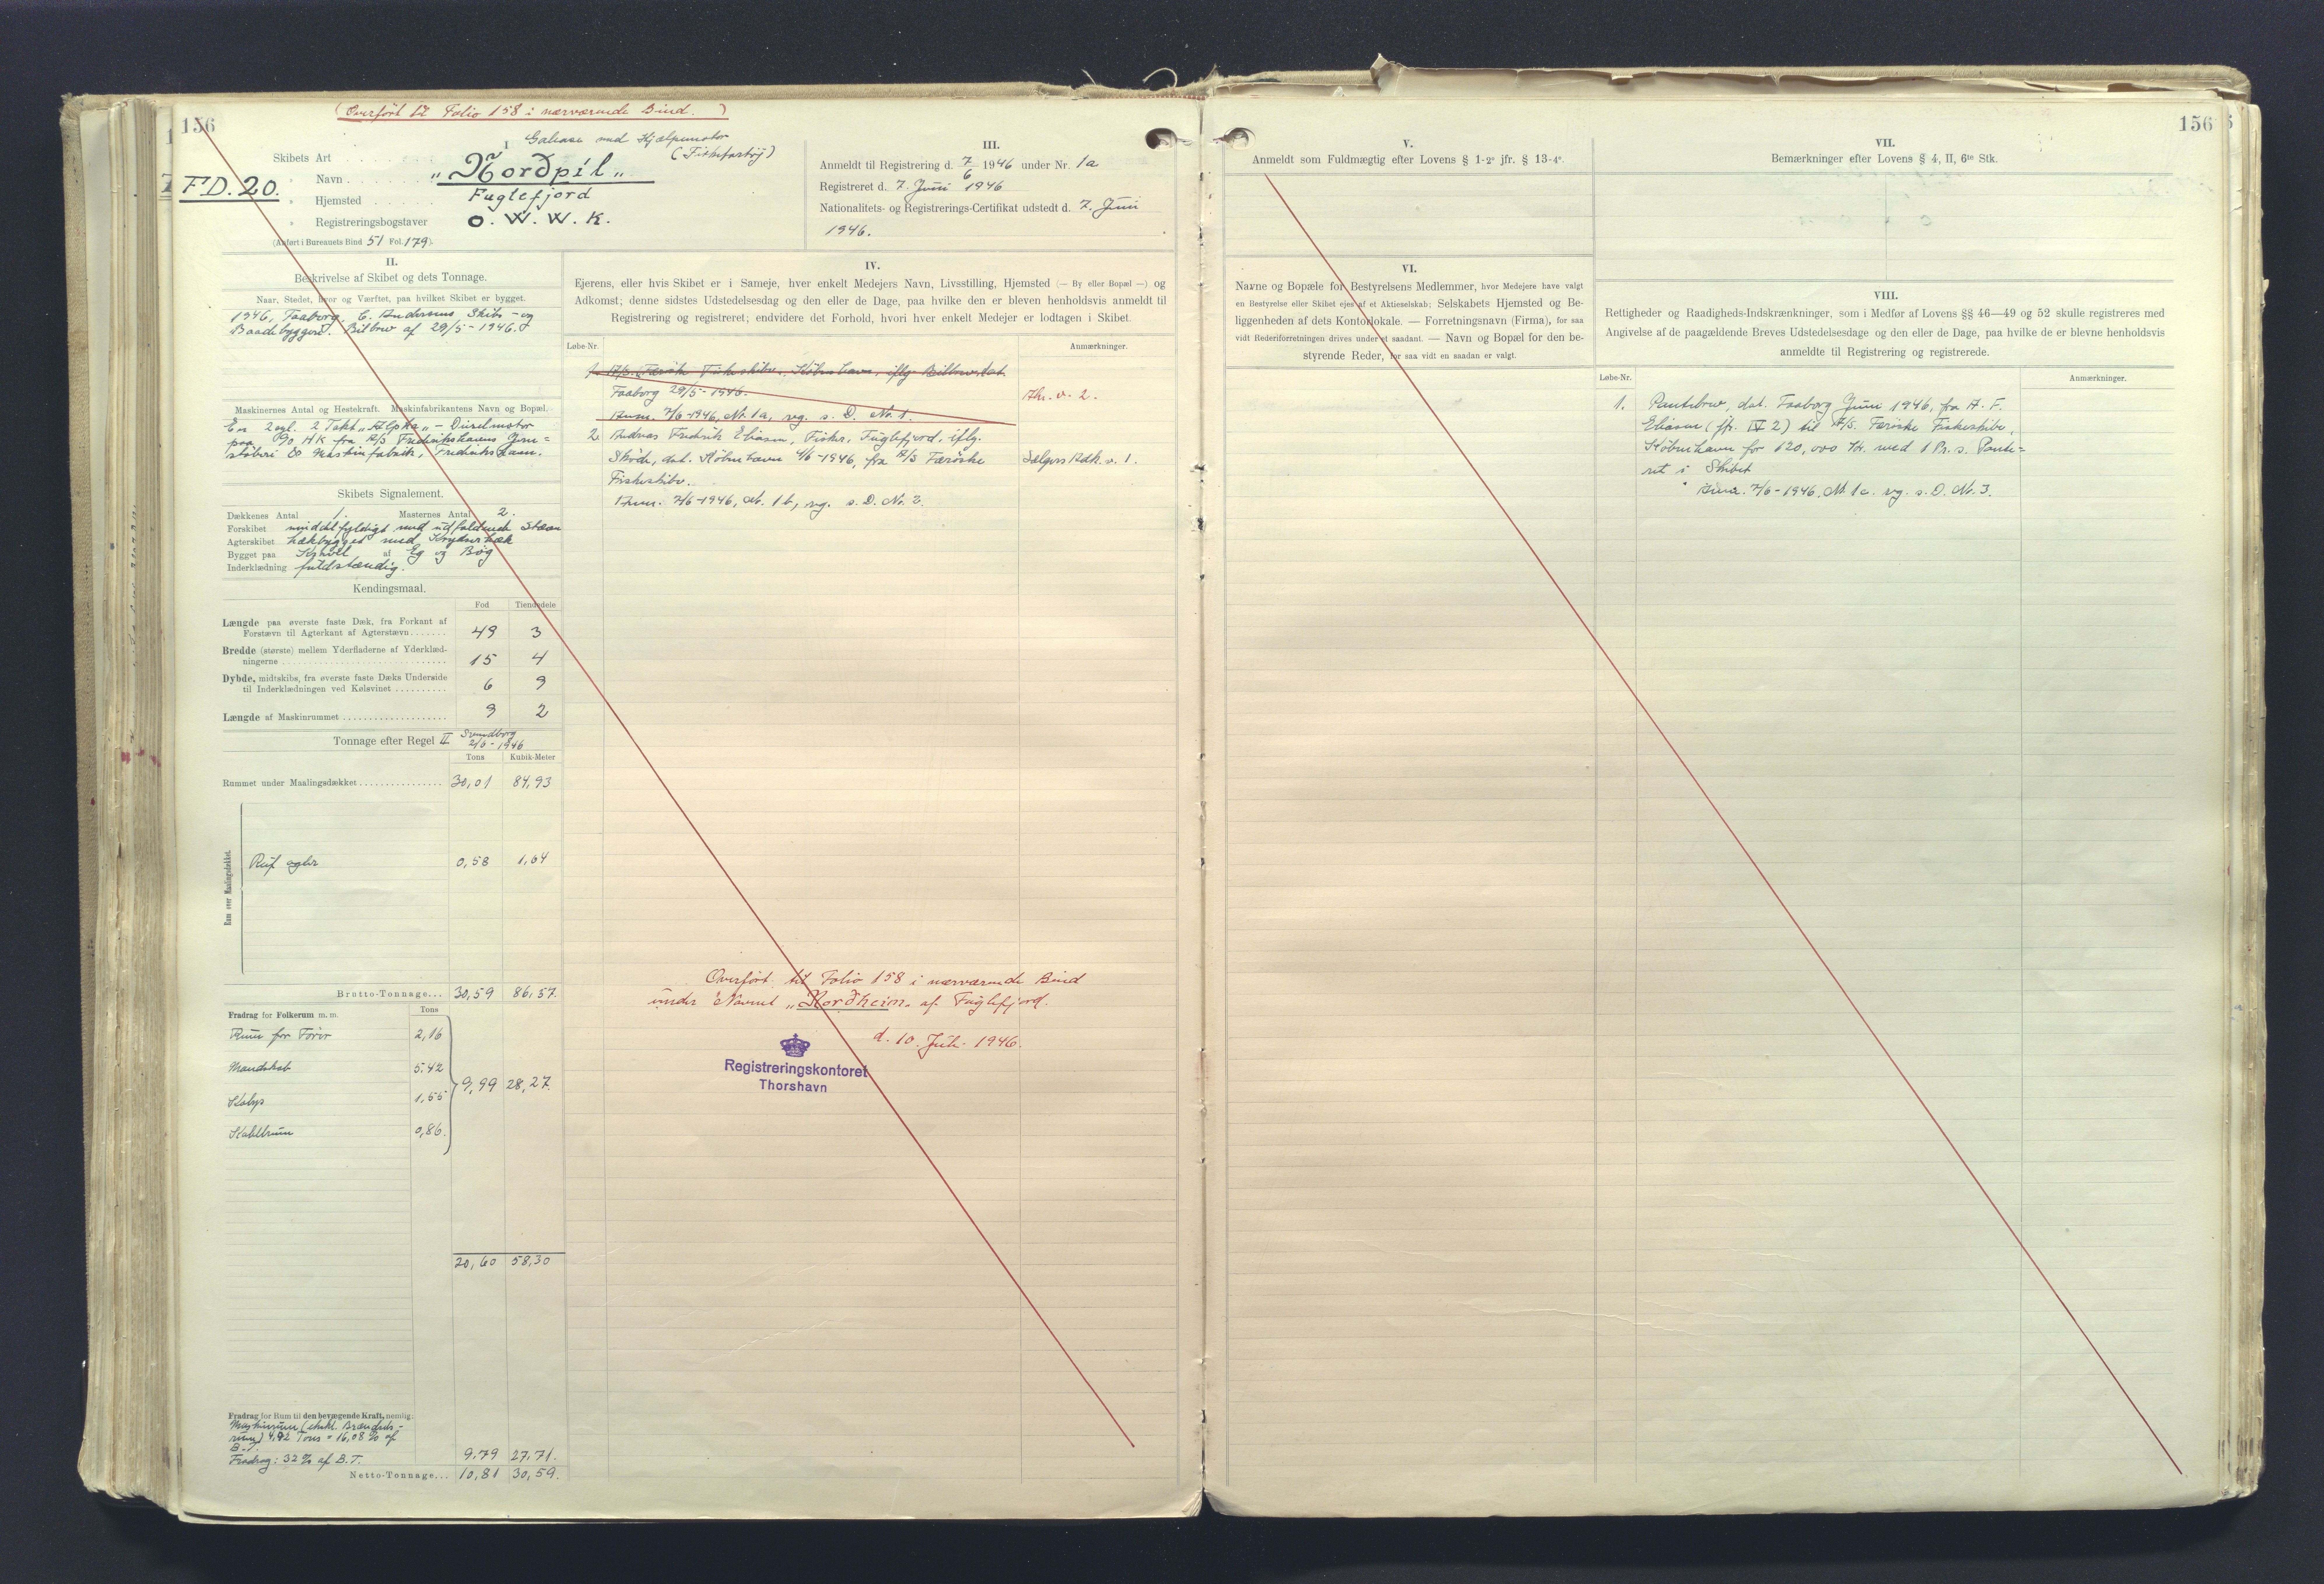 (Overført til Folio 158 i nærværende Bind.)
156
I
Galease med Hjælpemotor
(Fiskefartøj)
Skibets Art
FD. 20.
Navn "Nordpil"
Hjemsted Fuglefjord
Registreringsbogstaver O. W. W. K.
(Anført i Bureauets Bind 51 Fol. 179).
III.
Anmeldt til Registrering d. 7/6 1946 under Nr. 1a
Registreret d. 7. Juni 1946
Nationalitets- og Registrerings-Certifikat udstedt d. 7. Juni
1946.
II.
Beskrivelse af Skibet og dets Tonnage.
Naar, Stedet, hvor og Værftet, paa hvilket Skibet er bygget.
1946, Faaborg, C. Andersens Skibs- og
Baadebyggeri. Bilbrev af 29/5-1946.
Maskinernes Antal og Hestekraft. Maskinfabrikantens Navn og Bopæl.
En 2 cyl. 2 Takt "Alpha" - Dieselmotor
paa 90 HK fra A/S Frederikshavns Jern=
støberi & Maskinfabrik, Frederikshavn.
Skibets Signalement.
Dækkenes Antal 1. Masternes Antal 2.
Forskibet middelfyldigt med udfaldende Stævn
Agterskibet hækbygget med Krydserhæk
Bygget paa Kravel af Eg og Bøg
Inderklædning fuldstændig.
Kendingsmaal.
Fod Tiendedele
Længde paa øverste faste Dæk, fra Forkant af
Forstævn til Agterkant af Agterstævn 49 3
Bredde (største) mellem Yderfladerne af Yderklæd-
ningerne 15 4
Dybde, midtskibs, fra øverste faste Dæks Underside
til Inderklædningen ved Kølsvinet 6 9
Længde af Maskinrummet 9 2
Tonnage efter Regel II Svendborg
2/6-1946
Tons Kubik-Meter
Rummet under Maalingsdækket 30,01 84,93
Rum over Maalingsdækket.
Ruf agter 0,58 1,64
Brutto-Tonnage... 30,59 86,57.
Fradrag for Folkerum m. m. Tons
Rum for Fører 2,16
Mandskab 5,42
9,99 28,27.
Kabys 1,55
Kabelrum 0,86.
20,60 58,30
Fradrag for Rum til den bevægende Kraft, nemlig:
Maskinrum (ekskl. Brændsels-
rum) 4,92 Tons = 16,08 % af
B.T.
Fradrag: 32 % af B.T. 9,79 27,71.
Netto-Tonnage... 10,81 30,59.
IV.
Ejerens, eller hvis Skibet er i Sameje, hver enkelt Medejers Navn, Livsstilling, Hjemsted (— By eller Bopæl —) og
Adkomst; denne sidstes Udstedelsesdag og den eller de Dage, paa hvilke den er bleven henholdsvis anmeldt til
Registrering og registreret; endvidere det Forhold, hvori hver enkelt Medejer er lodtagen i Skibet.
Løbe-Nr. Anmærkninger.
1. A/S. Færøske Fiskeskibe, København, iflg. Bilbrev, dat.
Faaborg 29/5-1946. Afh. v. 2.
Anm. 7/6-1946, Nr. 1a, reg. s. D. Nr. 1.
2. Andreas Fredrik Eliasen, Fisker, Fuglefjord, iflg.
Skøde, dat. København 4/6-1946, fra A/S Færøske Sælgers Adk. v. 1.
Fiskeskibe.
Anm. 7/6-1946, Nr. 1b, reg. s. D. Nr. 2.
Overført til Folio 158 i nærværende Bind
under Navnet "Nordheim" af Fuglefjord.
d. 10. Juli 1946.
Registreringskontoret
Thorshavn
156
V.
Anmeldt som Fuldmægtig efter Lovens § 1-2° jfr. § 13-4°.
VII.
Bemærkninger efter Lovens § 4, II, 6te Stk.
VI.
Navne og Bopæle for Bestyrelsens Medlemmer, hvor Medejere have valgt
en Bestyrelse eller Skibet ejes af et Aktieselskab; Selskabets Hjemsted og Be-
liggenheden af dets Kontorlokale. — Forretningsnavn (Firma), for saa
vidt Rederiforretningen drives under et saadant. — Navn og Bopæl for den be-
styrende Reder, for saa vidt en saadan er valgt.
VIII.
Rettigheder og Raadigheds-Indskrænkninger, som i Medfør af Lovens §§ 46—49 og 52 skulle registreres med
Angivelse af de paagældende Breves Udstedelsesdage og den eller de Dage, paa hvilke de er blevne henholdsvis
anmeldte til Registrering og registrerede.
Løbe-Nr. Anmærkninger.
1. Pantebrev, dat. Faaborg Juni 1946, fra A. F.
Eliasen (jfr. IV 2) til A/S. Færøske Fiskeskibe,
København for 120,000 Kr. med 1 Pr. s. Pante=
ret i Skibet
Anm. 7/6-1946, Nr. 1c. reg. s. D. Nr. 3.